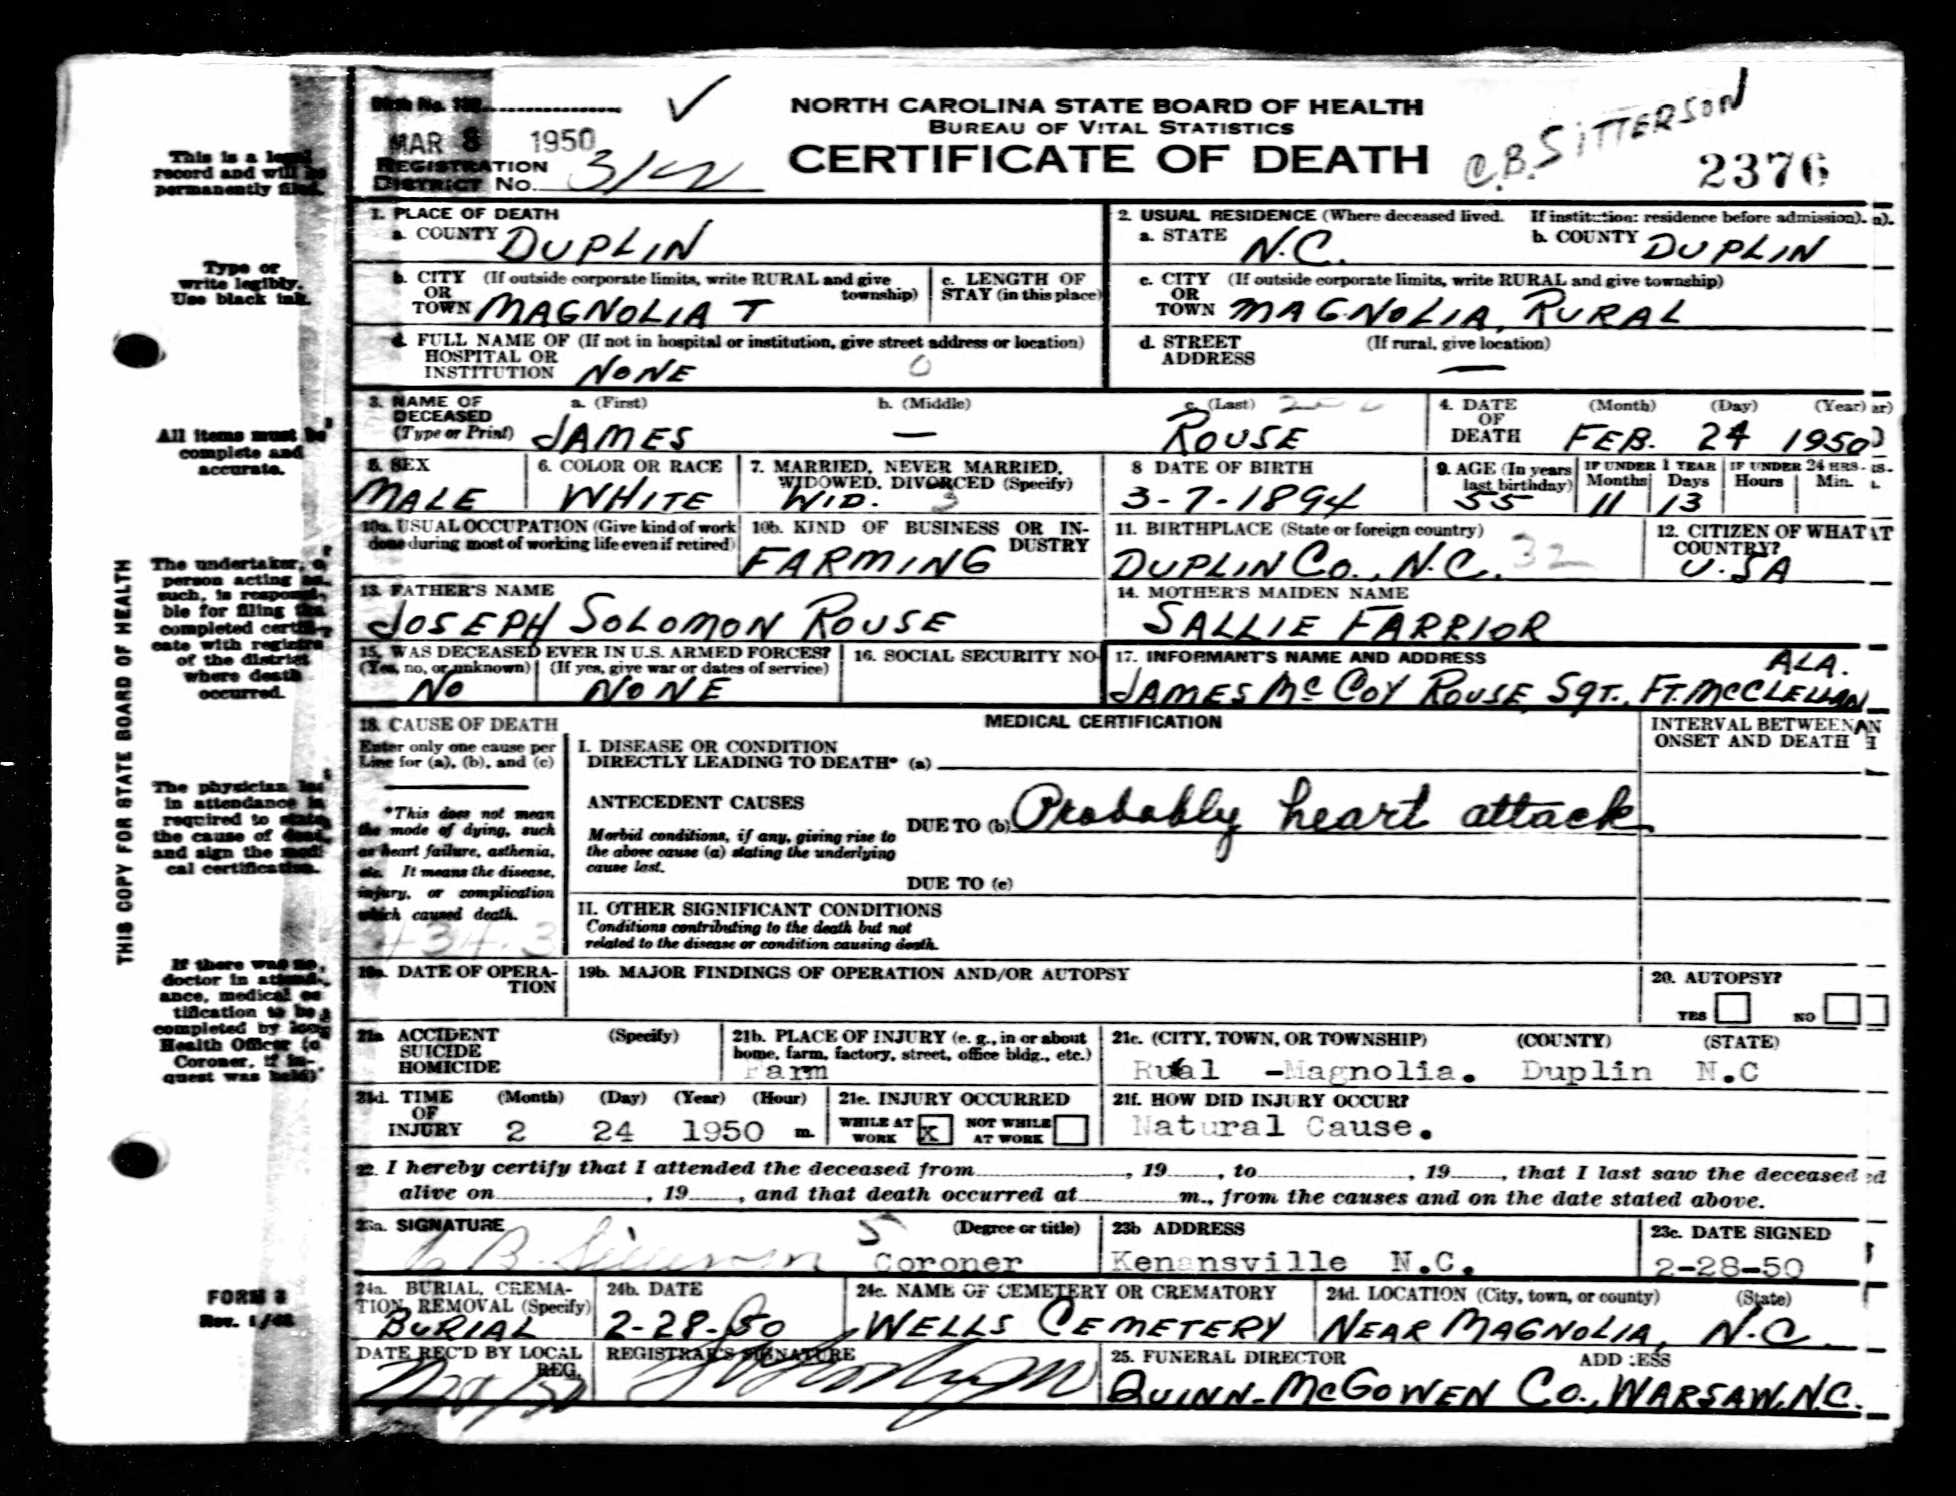 Birth No. 132
MAR 8 1950
REGISTRATION
DISTRICT No.
NORTH CAROLINA STATE BOARD OF HEALTH
BUREAU OF VITAL STATISTICS
CERTIFICATE OF DEATH
C.B. SITTERSON
2376
This is a legal
record and will be
permanently filed.
Type or
write legibly.
Use black ink.
All items must be
complete and
accurate.
The undertaker, or
person acting as
such, is responsi-
ble for filing the
completed certifi-
cate with registrar
of the district
where death
occurred.
The physician last
in attendance is
required to state
the cause of death
and sign the medi-
cal certification.
If there was no
doctor in attend-
ance, medical cer-
tification to be
completed by local
Health Officer (or
Coroner, if in-
quest was held)
FORM 8
Rev. 1/48
THIS COPY FOR STATE BOARD OF HEALTH
1. PLACE OF DEATH
a. COUNTY DUPLIN
2. USUAL RESIDENCE (Where deceased lived. If institution: residence before admission).
a. STATE N.C. b. COUNTY DUPLIN
b. CITY (If outside corporate limits, write RURAL and give township)
OR
TOWN MAGNOLIA T
c. LENGTH OF
STAY (in this place)
c. CITY (If outside corporate limits, write RURAL and give township)
OR
TOWN MAGNOLIA, RURAL
d. FULL NAME OF (If not in hospital or institution, give street address or location)
HOSPITAL OR
INSTITUTION NONE 0
d. STREET (If rural, give location)
ADDRESS —
3. NAME OF a. (First) b. (Middle) c. (Last)
DECEASED
(Type or Print) JAMES — ROUSE
4. DATE (Month) (Day) (Year)
OF
DEATH FEB. 24 1950
5. SEX
MALE
6. COLOR OR RACE
WHITE
7. MARRIED, NEVER MARRIED,
WIDOWED, DIVORCED (Specify)
WID. 3
8 DATE OF BIRTH
3-7-1894
9. AGE (In years
last birthday)
55
IF UNDER 1 YEAR
Months Days
11 13
IF UNDER 24 HRS.
Hours Min.
10a. USUAL OCCUPATION (Give kind of work
done during most of working life even if retired)
10b. KIND OF BUSINESS OR IN-
DUSTRY
FARMING
11. BIRTHPLACE (State or foreign country)
DUPLIN CO., N.C. 32
12. CITIZEN OF WHAT
COUNTRY?
U.SA
13. FATHER'S NAME
JOSEPH SOLOMON ROUSE
14. MOTHER'S MAIDEN NAME
SALLIE FARRIOR
15. WAS DECEASED EVER IN U.S. ARMED FORCES?
(Yes, no, or unknown) (If yes, give war or dates of service)
NO NONE
16. SOCIAL SECURITY NO
17. INFORMANT'S NAME AND ADDRESS ALA.
JAMES McCOY ROUSE, SGT., FT. McCLELLAN
18. CAUSE OF DEATH
Enter only one cause per
Line for (a), (b), and (c)
*This does not mean
the mode of dying, such
as heart failure, asthenia,
etc. It means the disease,
injury, or complication
which caused death.
434.3
MEDICAL CERTIFICATION
INTERVAL BETWEEN
ONSET AND DEATH
I. DISEASE OR CONDITION
DIRECTLY LEADING TO DEATH* (a)
ANTECEDENT CAUSES
Morbid conditions, if any, giving rise to
the above cause (a) stating the underlying
cause last.
DUE TO (b) Probably heart attack
DUE TO (c)
II. OTHER SIGNIFICANT CONDITIONS
Conditions contributing to the death but not
related to the disease or condition causing death.
19a. DATE OF OPERA-
TION
19b. MAJOR FINDINGS OF OPERATION AND/OR AUTOPSY
20. AUTOPSY?
YES NO
21a ACCIDENT (Specify)
SUICIDE
HOMICIDE
21b. PLACE OF INJURY (e. g., in or about
home, farm, factory, street, office bldg., etc.)
Farm
21c. (CITY, TOWN, OR TOWNSHIP) (COUNTY) (STATE)
Rural -Magnolia. Duplin N.C
21d. TIME (Month) (Day) (Year) (Hour)
OF
INJURY 2 24 1950 m.
21e. INJURY OCCURRED
WHILE AT WORK X NOT WHILE AT WORK
21f. HOW DID INJURY OCCUR?
Natural Cause.
22. I hereby certify that I attended the deceased from, 19, to, 19, that I last saw the deceased
alive on, 19, and that death occurred at m., from the causes and on the date stated above.
23a. SIGNATURE (Degree or title)
C B Sitterson 5 Coroner
23b ADDRESS
Kenansville N.C.
23c. DATE SIGNED
2-28-50
24a. BURIAL, CREMA-
TION, REMOVAL (Specify)
BURIAL
24b. DATE
2-28-50
24c. NAME OF CEMETERY OR CREMATORY
WELLS CEMETERY
24d. LOCATION (City, town, or county) (State)
NEAR MAGNOLIA, N.C.
DATE REC'D BY LOCAL
REG.
REGISTRAR'S SIGNATURE
25. FUNERAL DIRECTOR ADDRESS
QUINN-McGOWEN CO., WARSAW, N.C.